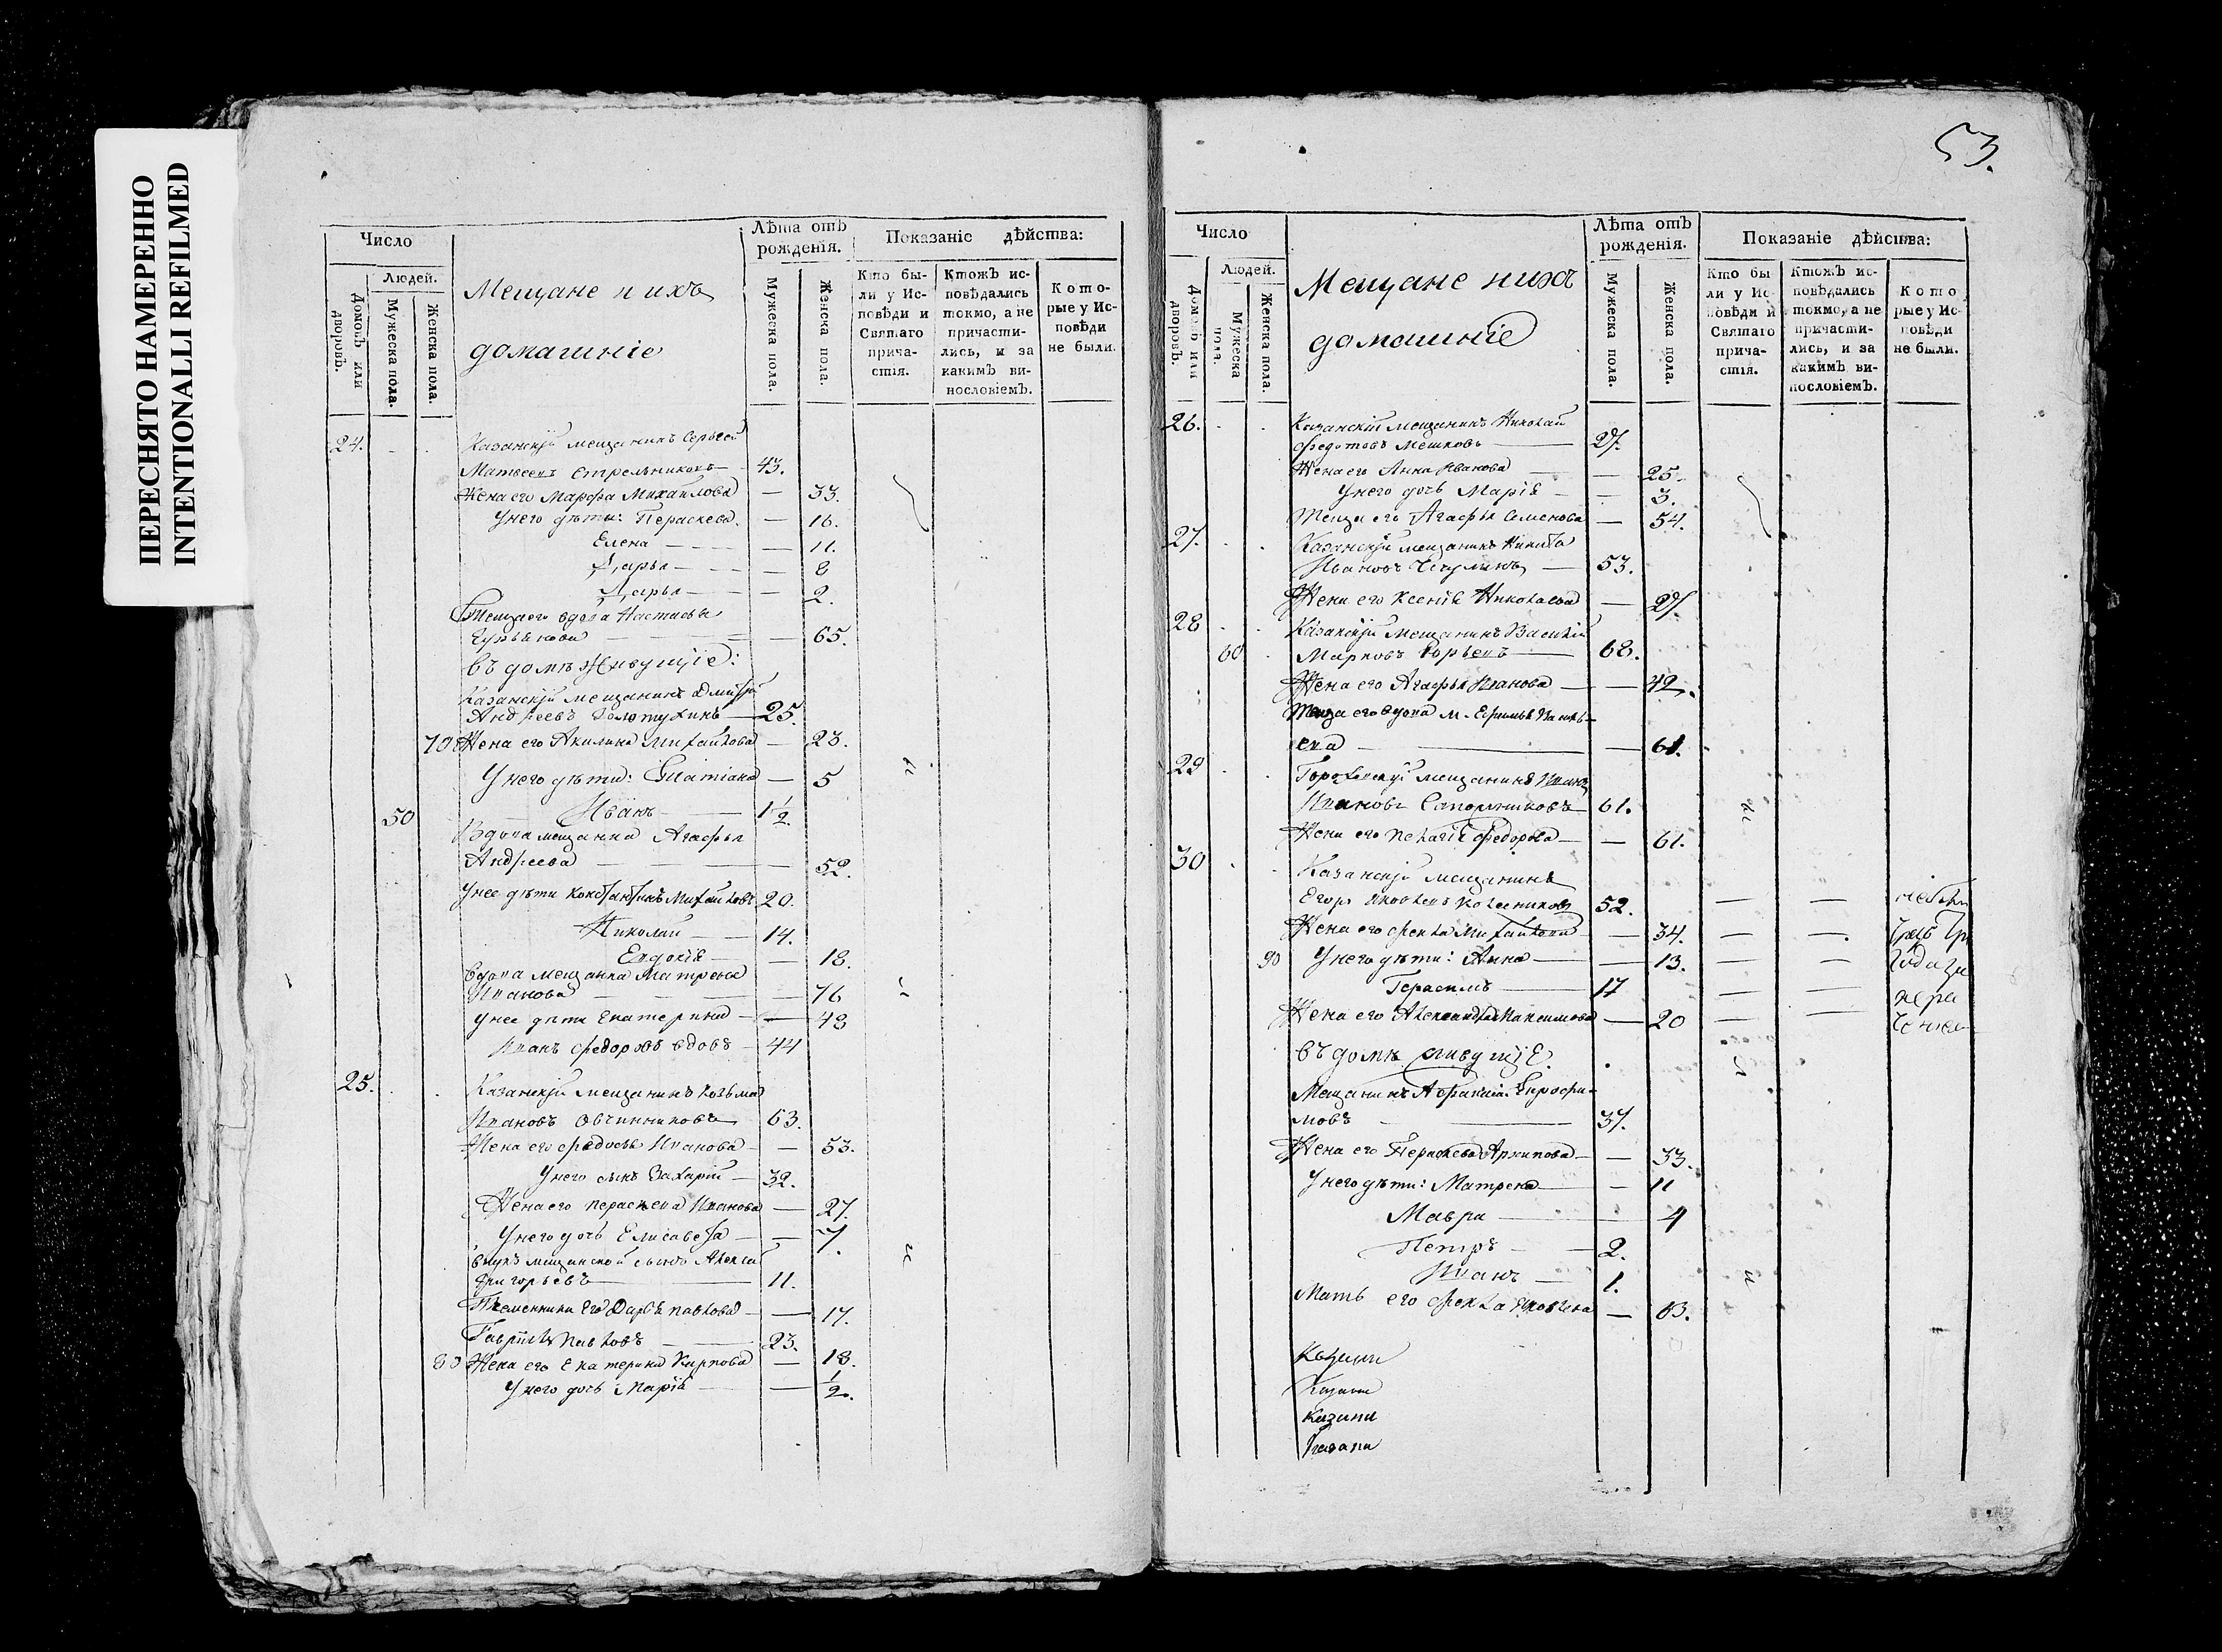 ПЕРЕСНЯТО НАМЕРЕННО
INTENTIONALLI REFILMED
Число
Людей.
Домовъ или дворовъ.
Мужеска пола.
Женска пола.
Мещане и ихъ
домашніе
Лѣта отъ рожденія.
Мужеска пола.
Женска пола.
Показаніе дѣйства:
Кто бы-
ли у Ис-
повѣди и
Святаго
прича-
стія.
Ктожъ ис-
повѣдались
токмо, а не
причасти-
лись, и за
какимъ ви-
нословіемъ.
Кото-
рые у Ис-
повѣди
не были.
24. Казанскій мещанинъ Сергей
Матвеевъ Стрельниковъ 43.
Жена его Марфа Михайлова 33.
У него дѣти: Параскева 16.
Елена 11.
Дарья 8
Дарья 2.
Теща его вдова Настасья
65.
Въ домѣ живущіе:
Казанскій мещанинъ Дмитрій
Андреевъ Золотухинъ 25.
70 Жена его Акилина Михайлова 23.
У него дѣти: Татіана 5
50 Иванъ 1 1/2
Вдова мещанка Агафья
Андреева 52.
У нее дѣти Константинъ Михайловъ 20.
Николай 14.
Евдокія 18.
Вдова мещанка Матрена
Иванова 76
У нее дѣти Екатерина 48
Иванъ Федоровъ вдовъ 44
25. Казанскій мещанинъ Козьма
Ивановъ Овчинниковъ 63.
Жена его Федосья Иванова 53.
У него сынъ Захарій 32.
Жена его Параскева Иванова 27.
У него дочь Елисавета 7.
Внукъ мещанской сынъ Алексей
Григорьевъ 11.
Племянники его Дарья Павлова 17.
Гаврила Павловъ 23.
80 Жена его Екатерина Карпова 18.
У него дочь Марія 1/2.
53.
Число
Людей.
Домовъ или дворовъ.
Мужеска пола.
Женска пола.
Мещане ихъ
домашніе
Лѣта отъ рожденія.
Мужеска пола.
Женска пола.
Показаніе дѣйства:
Кто бы
ли у Ис
повѣди и
Святаго
прича-
стія.
Ктожъ ис-
повѣдались
токмо, а не
причасти-
лись, и за
какимъ ви-
нословіемъ.
Кото
рые у Ис
повѣди
не были.
26. Казанскій мещанинъ Николай
Федотовъ Мешковъ 27.
Жена его Анна Иванова 25.
У него дочь Марія 3.
Теща его Агафья Семенова 54.
27. Казанскій мещанинъ Никита
Ивановъ 53.
Жена его Ксенія Николаева 27.
28 Казанскій мещанинъ Василій
60 Марковъ 68.
Жена его Агафья Иванова 42.
Теща его вдова
ева 61.
29 мещанинъ Иванъ
Ивановъ Сапожниковъ 61.
Жена его Пелагія Федорова 61.
30 Казанскій мещанинъ
Егоръ Яковлевъ Колесниковъ 52.
Жена его Фекла Михайлова 34.
90 У него дѣти: Анна 13.
Герасимъ 17
Жена его Александра Максимова 20
Въ домѣ живущіе
Мещанинъ
мовъ 37.
Жена его Параскева Архипова 33.
У него дѣти: Матрена 11
Мавра 4
Петръ 2.
Иванъ 1.
Мать его Фекла Яковлева 63.
Казани